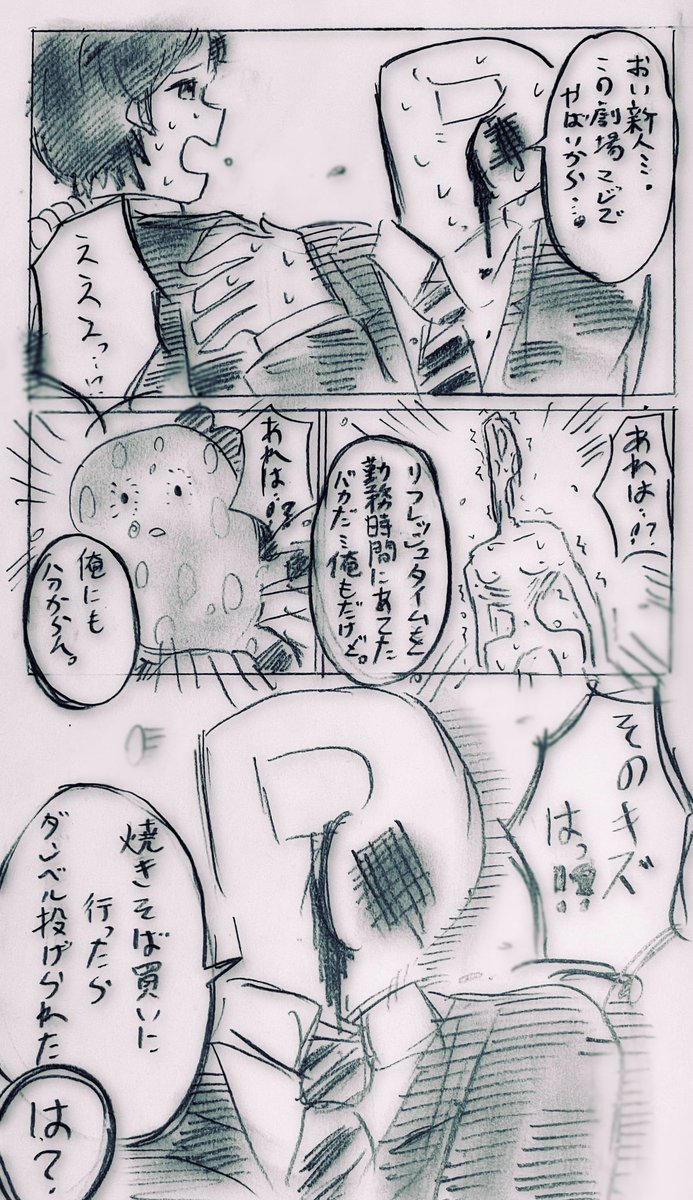 おい新人ミ。
この劇場マジで
やばいから…。
ええエっ…!?
あれは…!?
リフレッシュタイムを
勤務時間にあてた
バカだミ俺もだけど。
あれは…!?
俺にも
分からん。
そのキズ
はっ!?
焼きそば買いに
行ったら
ダンベル投げられた
は?